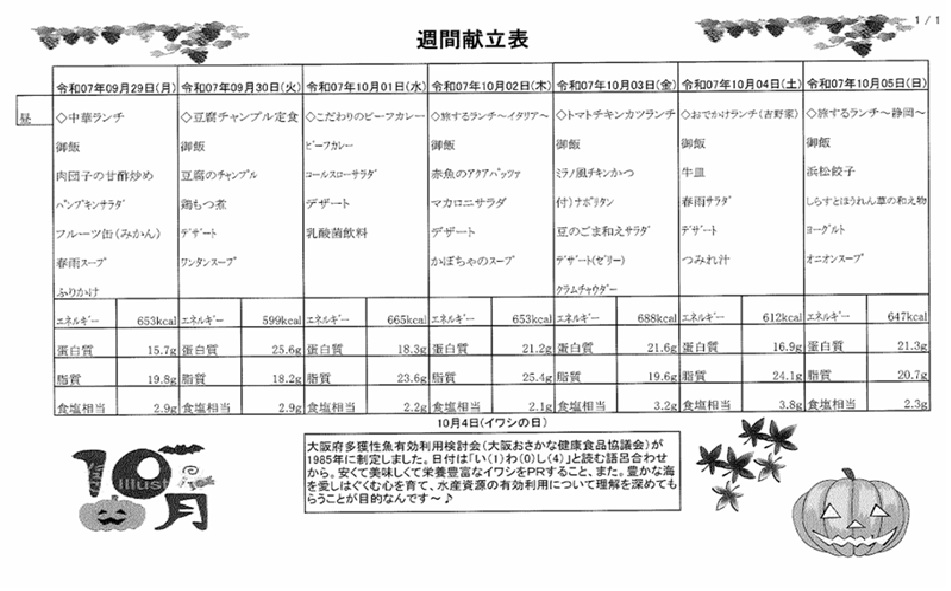 1 / 1
週間献立表
令和07年09月29日(月) 令和07年09月30日(火) 令和07年10月01日(水) 令和07年10月02日(木) 令和07年10月03日(金) 令和07年10月04日(土) 令和07年10月05日(日)
昼 ◇中華ランチ ◇豆腐チャンプル定食 ◇こだわりのビーフカレー ◇旅するランチ～イタリア～ ◇トマトチキンカツランチ ◇おでかけランチ(吉野家) ◇旅するランチ～静岡～
御飯 御飯 ビーフカレー 御飯 御飯 御飯 御飯
肉団子の甘酢炒め 豆腐のチャンプル コールスローサラダ 赤魚のアクアパッツァ ミラノ風チキンかつ 牛皿 浜松餃子
パンプキンサラダ 鶏もつ煮 デザート マカロニサラダ 付)ナポリタン 春雨サラダ しらすとほうれん草の和え物
フルーツ缶(みかん) デザート 乳酸菌飲料 デザート 豆のごま和えサラダ デザート ヨーグルト
春雨スープ ワンタンスープ かぼちゃのスープ デザート(ゼリー) つみれ汁 オニオンスープ
ふりかけ クラムチャウダー
エネルギー 653kcal エネルギー 599kcal エネルギー 665kcal エネルギー 653kcal エネルギー 688kcal エネルギー 612kcal エネルギー 647kcal
蛋白質 15.7g 蛋白質 25.6g 蛋白質 18.3g 蛋白質 21.2g 蛋白質 21.6g 蛋白質 16.9g 蛋白質 21.3g
脂質 19.8g 脂質 18.2g 脂質 23.6g 脂質 25.4g 脂質 19.6g 脂質 24.1g 脂質 20.7g
食塩相当 2.9g 食塩相当 2.9g 食塩相当 2.2g 食塩相当 2.1g 食塩相当 3.2g 食塩相当 3.8g 食塩相当 2.3g
10月4日(イワシの日)
大阪府多獲性魚有効利用検討会(大阪おさかな健康食品協議会)が
1985年に制定しました。日付は「い(1)わ(0)し(4)」と読む語呂合わせ
から。安くて美味しくて栄養豊富なイワシをPRすること、また。豊かな海
を愛しはぐくむ心を育て、水産資源の有効利用について理解を深めても
らうことが目的なんです～♪
10月